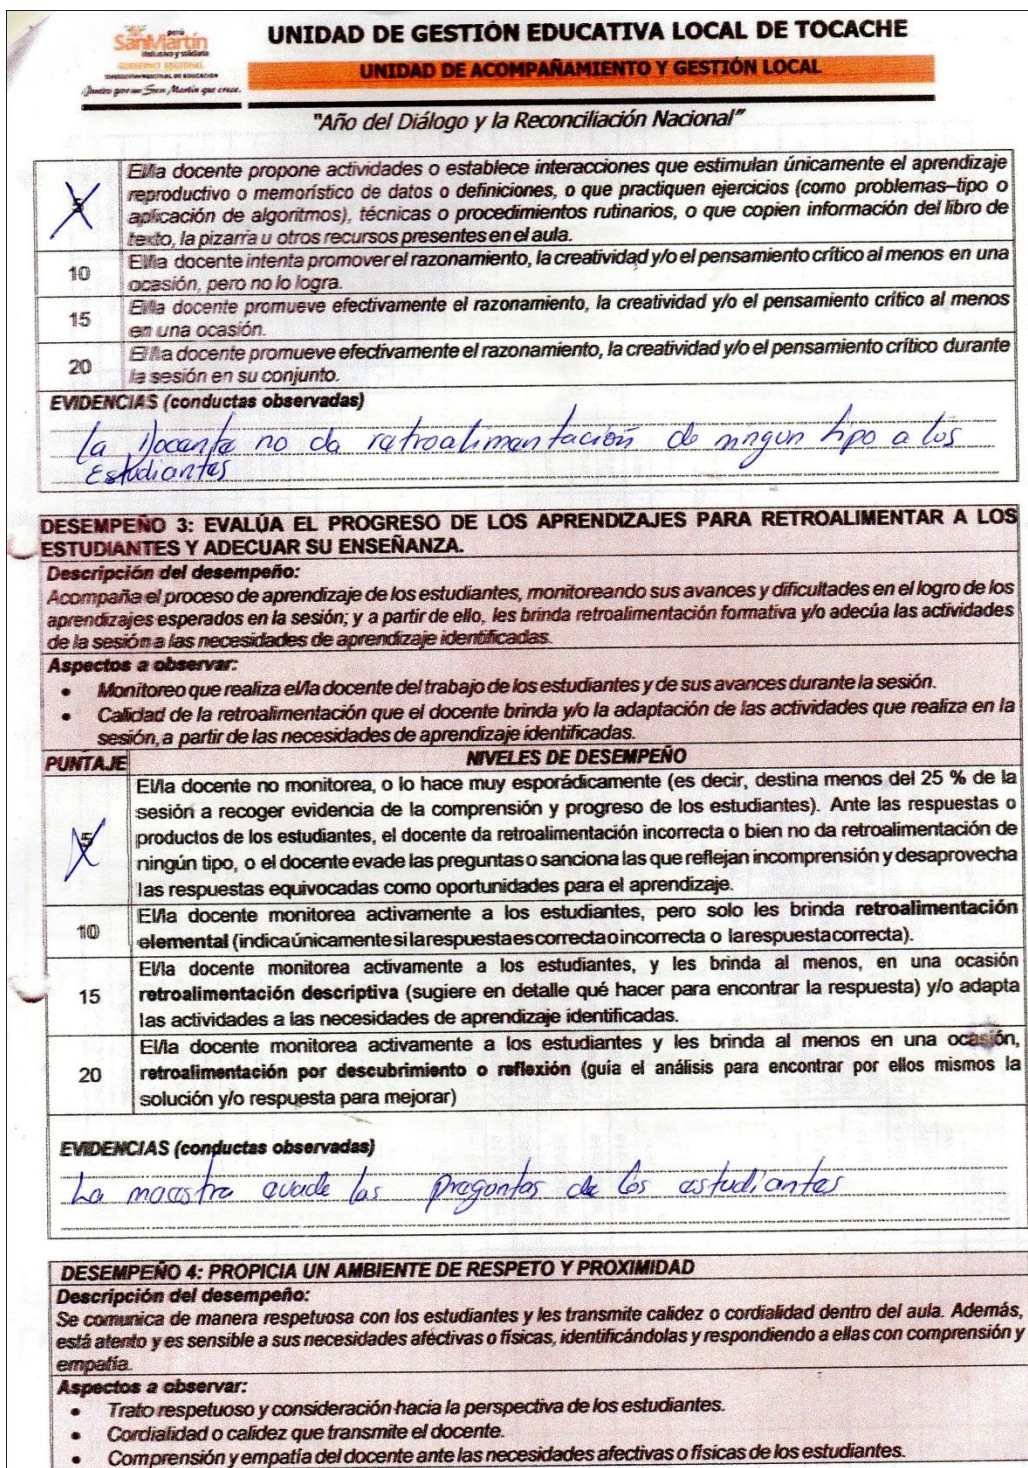 perú
SanMartín
inclusivo y solidario
GOBIERNO REGIONAL
DIRECCIÓN REGIONAL DE EDUCACIÓN
¡Juntos por un San Martín que crece.
UNIDAD DE GESTIÓN EDUCATIVA LOCAL DE TOCACHE
UNIDAD DE ACOMPAÑAMIENTO Y GESTIÓN LOCAL
"Año del Diálogo y la Reconciliación Nacional"
5
El/la docente propone actividades o establece interacciones que estimulan únicamente el aprendizaje
reproductivo o memorístico de datos o definiciones, o que practiquen ejercicios (como problemas–tipo o
aplicación de algoritmos), técnicas o procedimientos rutinarios, o que copien información del libro de
texto, la pizarra u otros recursos presentes en el aula.
10
El/la docente intenta promover el razonamiento, la creatividad y/o el pensamiento crítico al menos en una
ocasión, pero no lo logra.
15
El/la docente promueve efectivamente el razonamiento, la creatividad y/o el pensamiento crítico al menos
en una ocasión.
20
El/la docente promueve efectivamente el razonamiento, la creatividad y/o el pensamiento crítico durante
la sesión en su conjunto.
EVIDENCIAS (conductas observadas)
La docente no da retroalimentación de ningun tipo a los
Estudiantes
DESEMPEÑO 3: EVALÚA EL PROGRESO DE LOS APRENDIZAJES PARA RETROALIMENTAR A LOS
ESTUDIANTES Y ADECUAR SU ENSEÑANZA.
Descripción del desempeño:
Acompaña el proceso de aprendizaje de los estudiantes, monitoreando sus avances y dificultades en el logro de los
aprendizajes esperados en la sesión; y a partir de ello, les brinda retroalimentación formativa y/o adecúa las actividades
de la sesión a las necesidades de aprendizaje identificadas.
Aspectos a observar:
• Monitoreo que realiza el/la docente del trabajo de los estudiantes y de sus avances durante la sesión.
• Calidad de la retroalimentación que el docente brinda y/o la adaptación de las actividades que realiza en la
sesión, a partir de las necesidades de aprendizaje identificadas.
PUNTAJE NIVELES DE DESEMPEÑO
5
El/la docente no monitorea, o lo hace muy esporádicamente (es decir, destina menos del 25 % de la
sesión a recoger evidencia de la comprensión y progreso de los estudiantes). Ante las respuestas o
productos de los estudiantes, el docente da retroalimentación incorrecta o bien no da retroalimentación de
ningún tipo, o el docente evade las preguntas o sanciona las que reflejan incomprensión y desaprovecha
las respuestas equivocadas como oportunidades para el aprendizaje.
10
El/la docente monitorea activamente a los estudiantes, pero solo les brinda retroalimentación
elemental (indica únicamente si la respuesta es correcta o incorrecta o la respuesta correcta).
15
El/la docente monitorea activamente a los estudiantes, y les brinda al menos, en una ocasión
retroalimentación descriptiva (sugiere en detalle qué hacer para encontrar la respuesta) y/o adapta
las actividades a las necesidades de aprendizaje identificadas.
20
El/la docente monitorea activamente a los estudiantes y les brinda al menos en una ocasión,
retroalimentación por descubrimiento o reflexión (guía el análisis para encontrar por ellos mismos la
solución y/o respuesta para mejorar)
EVIDENCIAS (conductas observadas)
La maestra evade las preguntas de los estudiantes
DESEMPEÑO 4: PROPICIA UN AMBIENTE DE RESPETO Y PROXIMIDAD
Descripción del desempeño:
Se comunica de manera respetuosa con los estudiantes y les transmite calidez o cordialidad dentro del aula. Además,
está atento y es sensible a sus necesidades aféctivas o físicas, identificándolas y respondiendo a ellas con comprensión y
empatía.
Aspectos a observar:
• Trato respetuoso y consideración hacia la perspectiva de los estudiantes.
• Cordialidad o calidez que transmite el docente.
• Comprensión y empatía del docente ante las necesidades afectivas o físicas de los estudiantes.